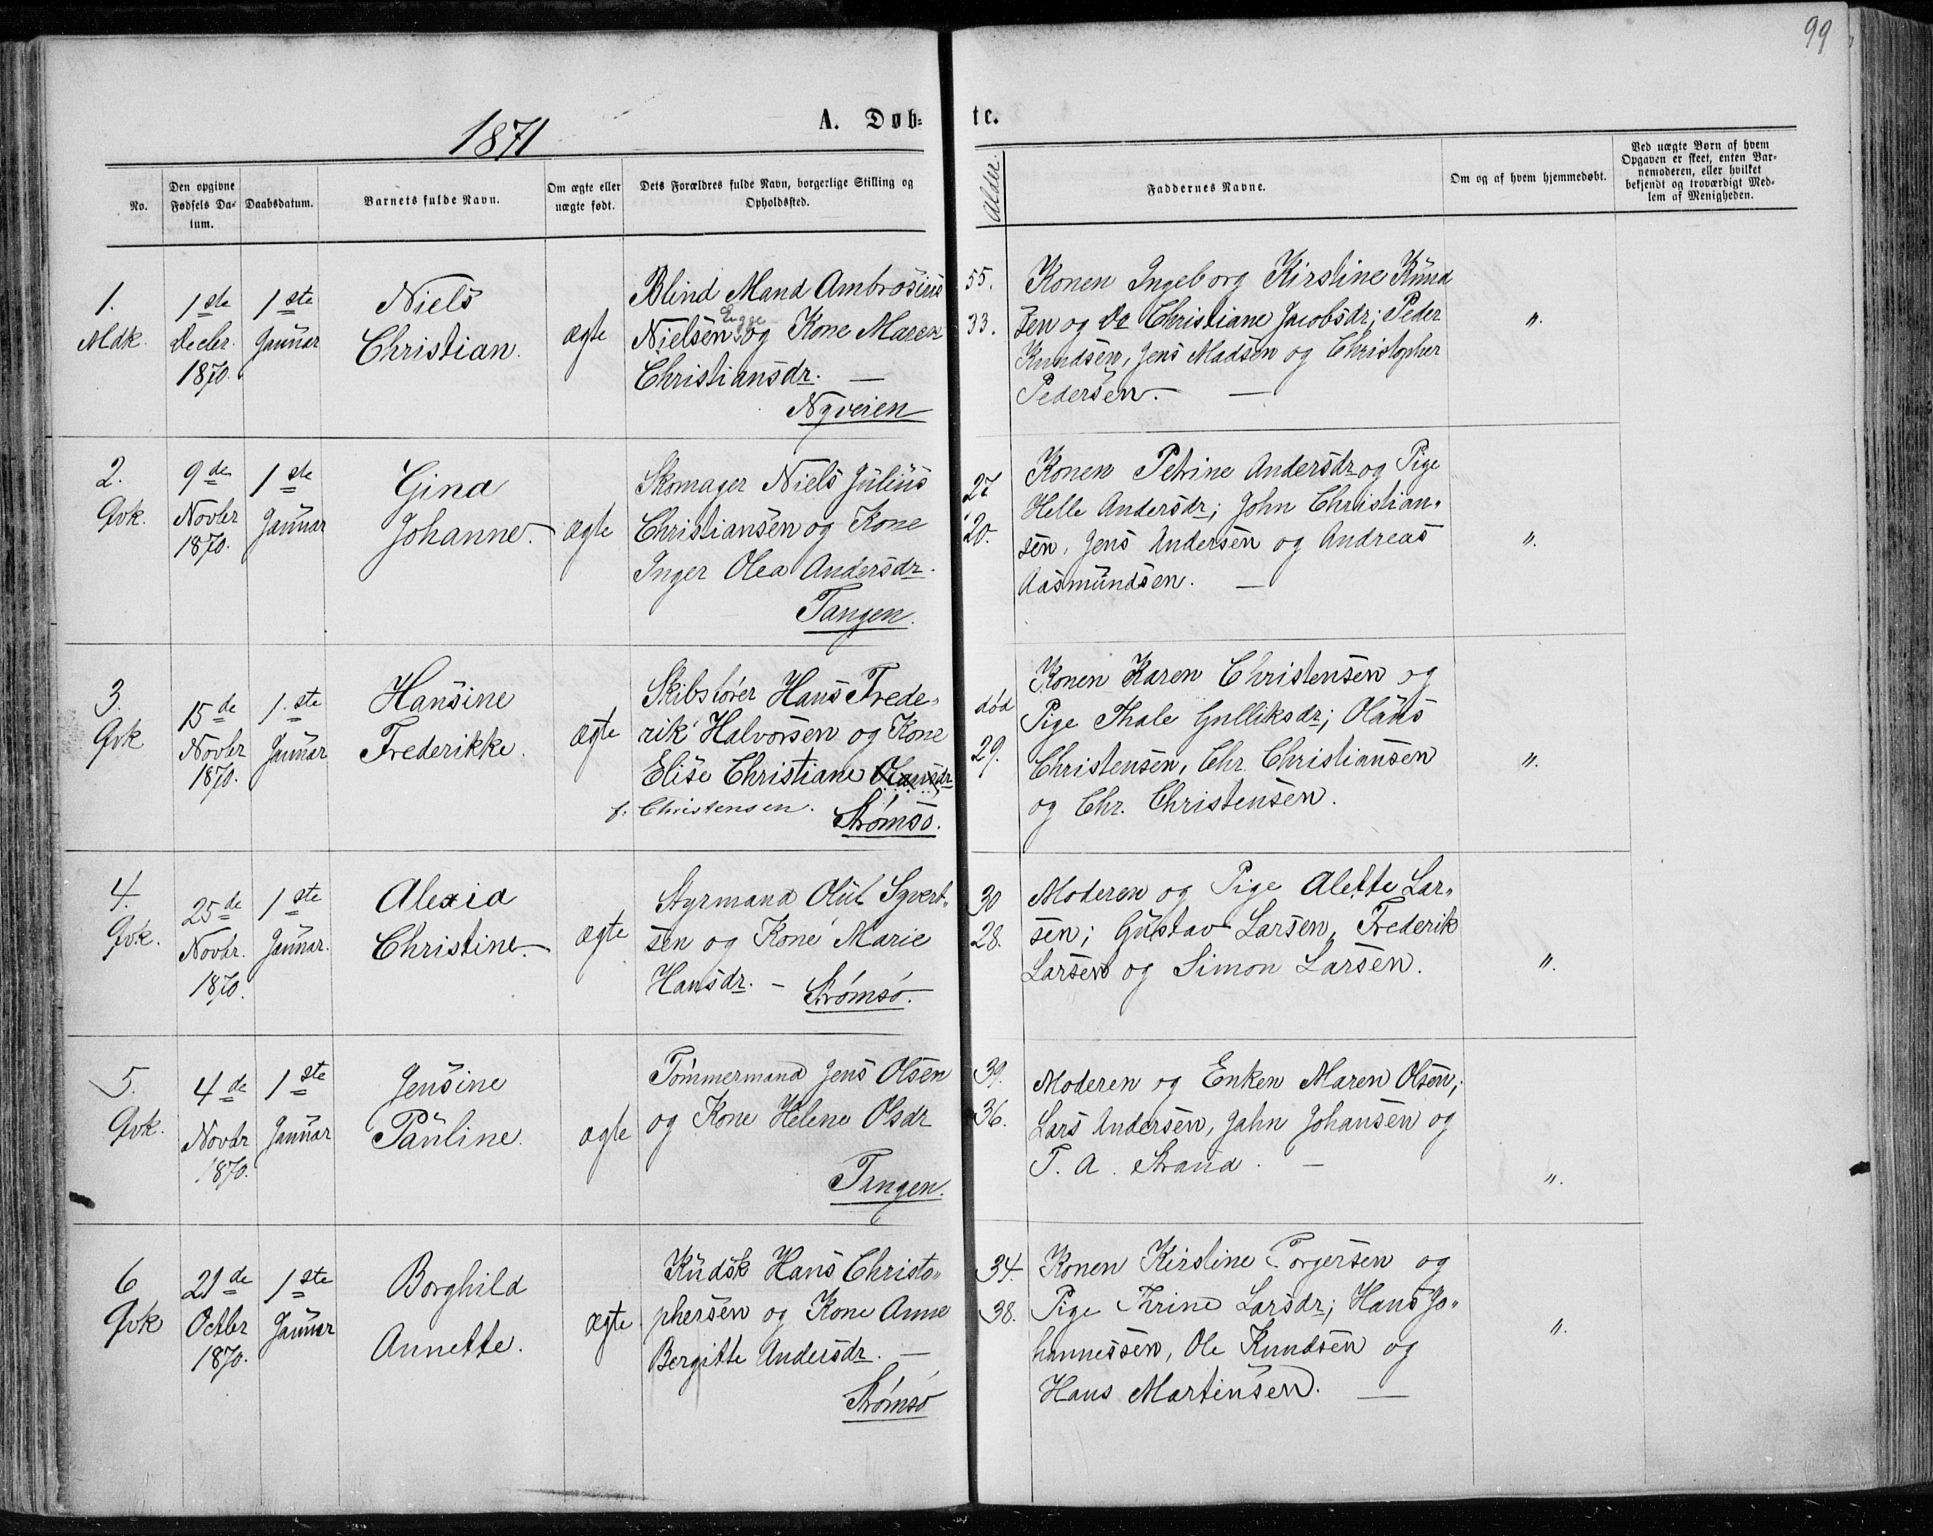 99
1871
A. Døb-
te.
No.
Den opgivne
Fødsels Da-
tum.
Daabsdatum.
Barnets fulde Navn.
Om ægte eller
uægte født.
Dets Forældres fulde Navn, borgerlige Stilling og
Opholdssted.
Alder.
Faddernes Navne.
Om og af hvem hjemmedøbt.
Ved uægte Børn af hvem
Opgaven er skeet, enten Bar-
nemoderen, eller hvilket
bekjendt og troværdigt Med-
lem af Menigheden.
1.
Mdk.
1ste
Decbr.
1870.
1ste
Januar
Niels
Christian.
ægte
Blind Mand Ambrosius
Nielsen Legge og Kone Maren
Christiansdr. —
Nyveien
55.
33.
Konen Ingeborg Kirstine Knud
sen og do Christiane Jacobsdr; Peder
Knudsen, Jens Madsen og Christopher
Pedersen. —
".
2.
Qvk.
9de
Novbr
1870.
1ste
Januar
Gina
Johanne.
ægte
Skomager Niels Julius
Christiansen og Kone
Inger Olea Andersdr.
Tangen.
27
20.
Konen Petrine Andersdr og Pige
Helle Andersdr; John Christian-
sen, Jens Andersen og Andreas
Aasmundsen. —
".
3.
Qvk
15de
Novbr
1870.
1ste
Januar
Hansine
Frederikke.
ægte
Skibsfører Hans Frede-
rik Halvorsen og Kone
Elise Christiane Olausdr
f. Christensen. Strømsø.
død
29.
Konen Karen Christensen og
Pige Thale Gulliksdr; Olaus
Christensen, Chr. Christiansen
og Chr. Christensen.
".
4.
Qvk.
25de
Novbr.
1870.
1ste
Januar.
Alexia
Christine.
ægte
Styrmand Oluf Syvert-
sen og Kone Marie
Hansdr. — Strømsø.
30
28.
Moderen og Pige Alette Lar-
sen; Gustav Larsen, Frederik
Larsen og Simon Larsen.
".
5.
Qvk.
4de
Novbr
1870.
1ste
Januar
Jensine
Pauline.
ægte
Tømmermand Jens Olsen
og Kone Helene Olsdr
Tangen.
39.
36.
Moderen og Enken Maren Olsen;
Lars Andersen, Jahn Johansen og
T. A. Strand. —
".
6
Qvk
21de
Octbr
1870.
1ste
Januar
Borghild
Annette.
ægte
Kudsk Hans Christo-
phersen og Kone Anne
Bergitte Andersdr. —
Strømsø
34.
38.
Konen Kirstine Torgersen og
Pige Thrine Larsdr; Hans Jo-
hannessen, Ole Knudsen og
Hans Martinsen. —
".